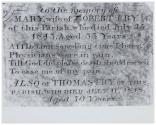 to the memory of
MARY, wife of ROBERT EBY
of this Parish, who died July
1845, Aged 55 Years
Afflictions sore long time I bore
Physicians were in vain
Till God did please death should
To ease me of my pain
ALSO of THOMAS EBY OF THIS
PARISH, WHO DIED
Aged 70 Years